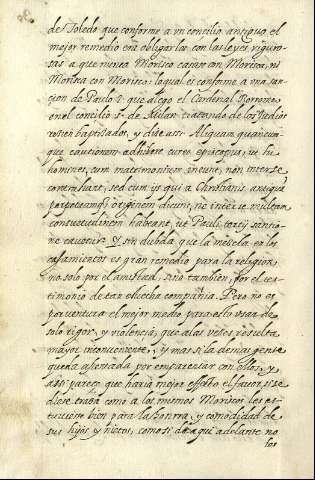 de Toledo que conforme a un concilio antiguo, el
mejor remedio era obligarlos con las leyes riguro-
sas a que nunca Morisco casase con Morisca, ni
Morisca con Morisco: lo qual es conforme a una san-
cion de Paulo 3º que alego el Cardenal Borromeo
en el concilio 5º de Milan tratando de los Judios
recien baptizados, y dize assi. Aliquam quancun-
que cautionem adhibere curet episcopus, ut hi
homines, cum matrimonium ineunt, non inter se
contrahant, sed cum ijs qui a Christianis antiqua
originem ducunt, ne inter se multam
consuetudinem habeant, ut Pauli tertij sanctio-
ne cavetur. Y sin dubda que la mescla en los
casamientos es gran remedio para la religion,
no solo por el amistad, sino tambien, por el tes-
timonio de tan estrecha compañia. Pero no es
por ventura el mejor medio para esto usar de
solo rigor, y violencia, que a las vezes resulta
mayor inconveniente, y mas si la demas gente
queda afrentada por emparentar con ellos, y
assi pareçe que haria mejor effetto el favor, si se
diese traça como a los mismos Moriscos les es-
tuviese bien para la honrra, y comodidad de
sus hijos y nietos, como si de aqui adelante no
los